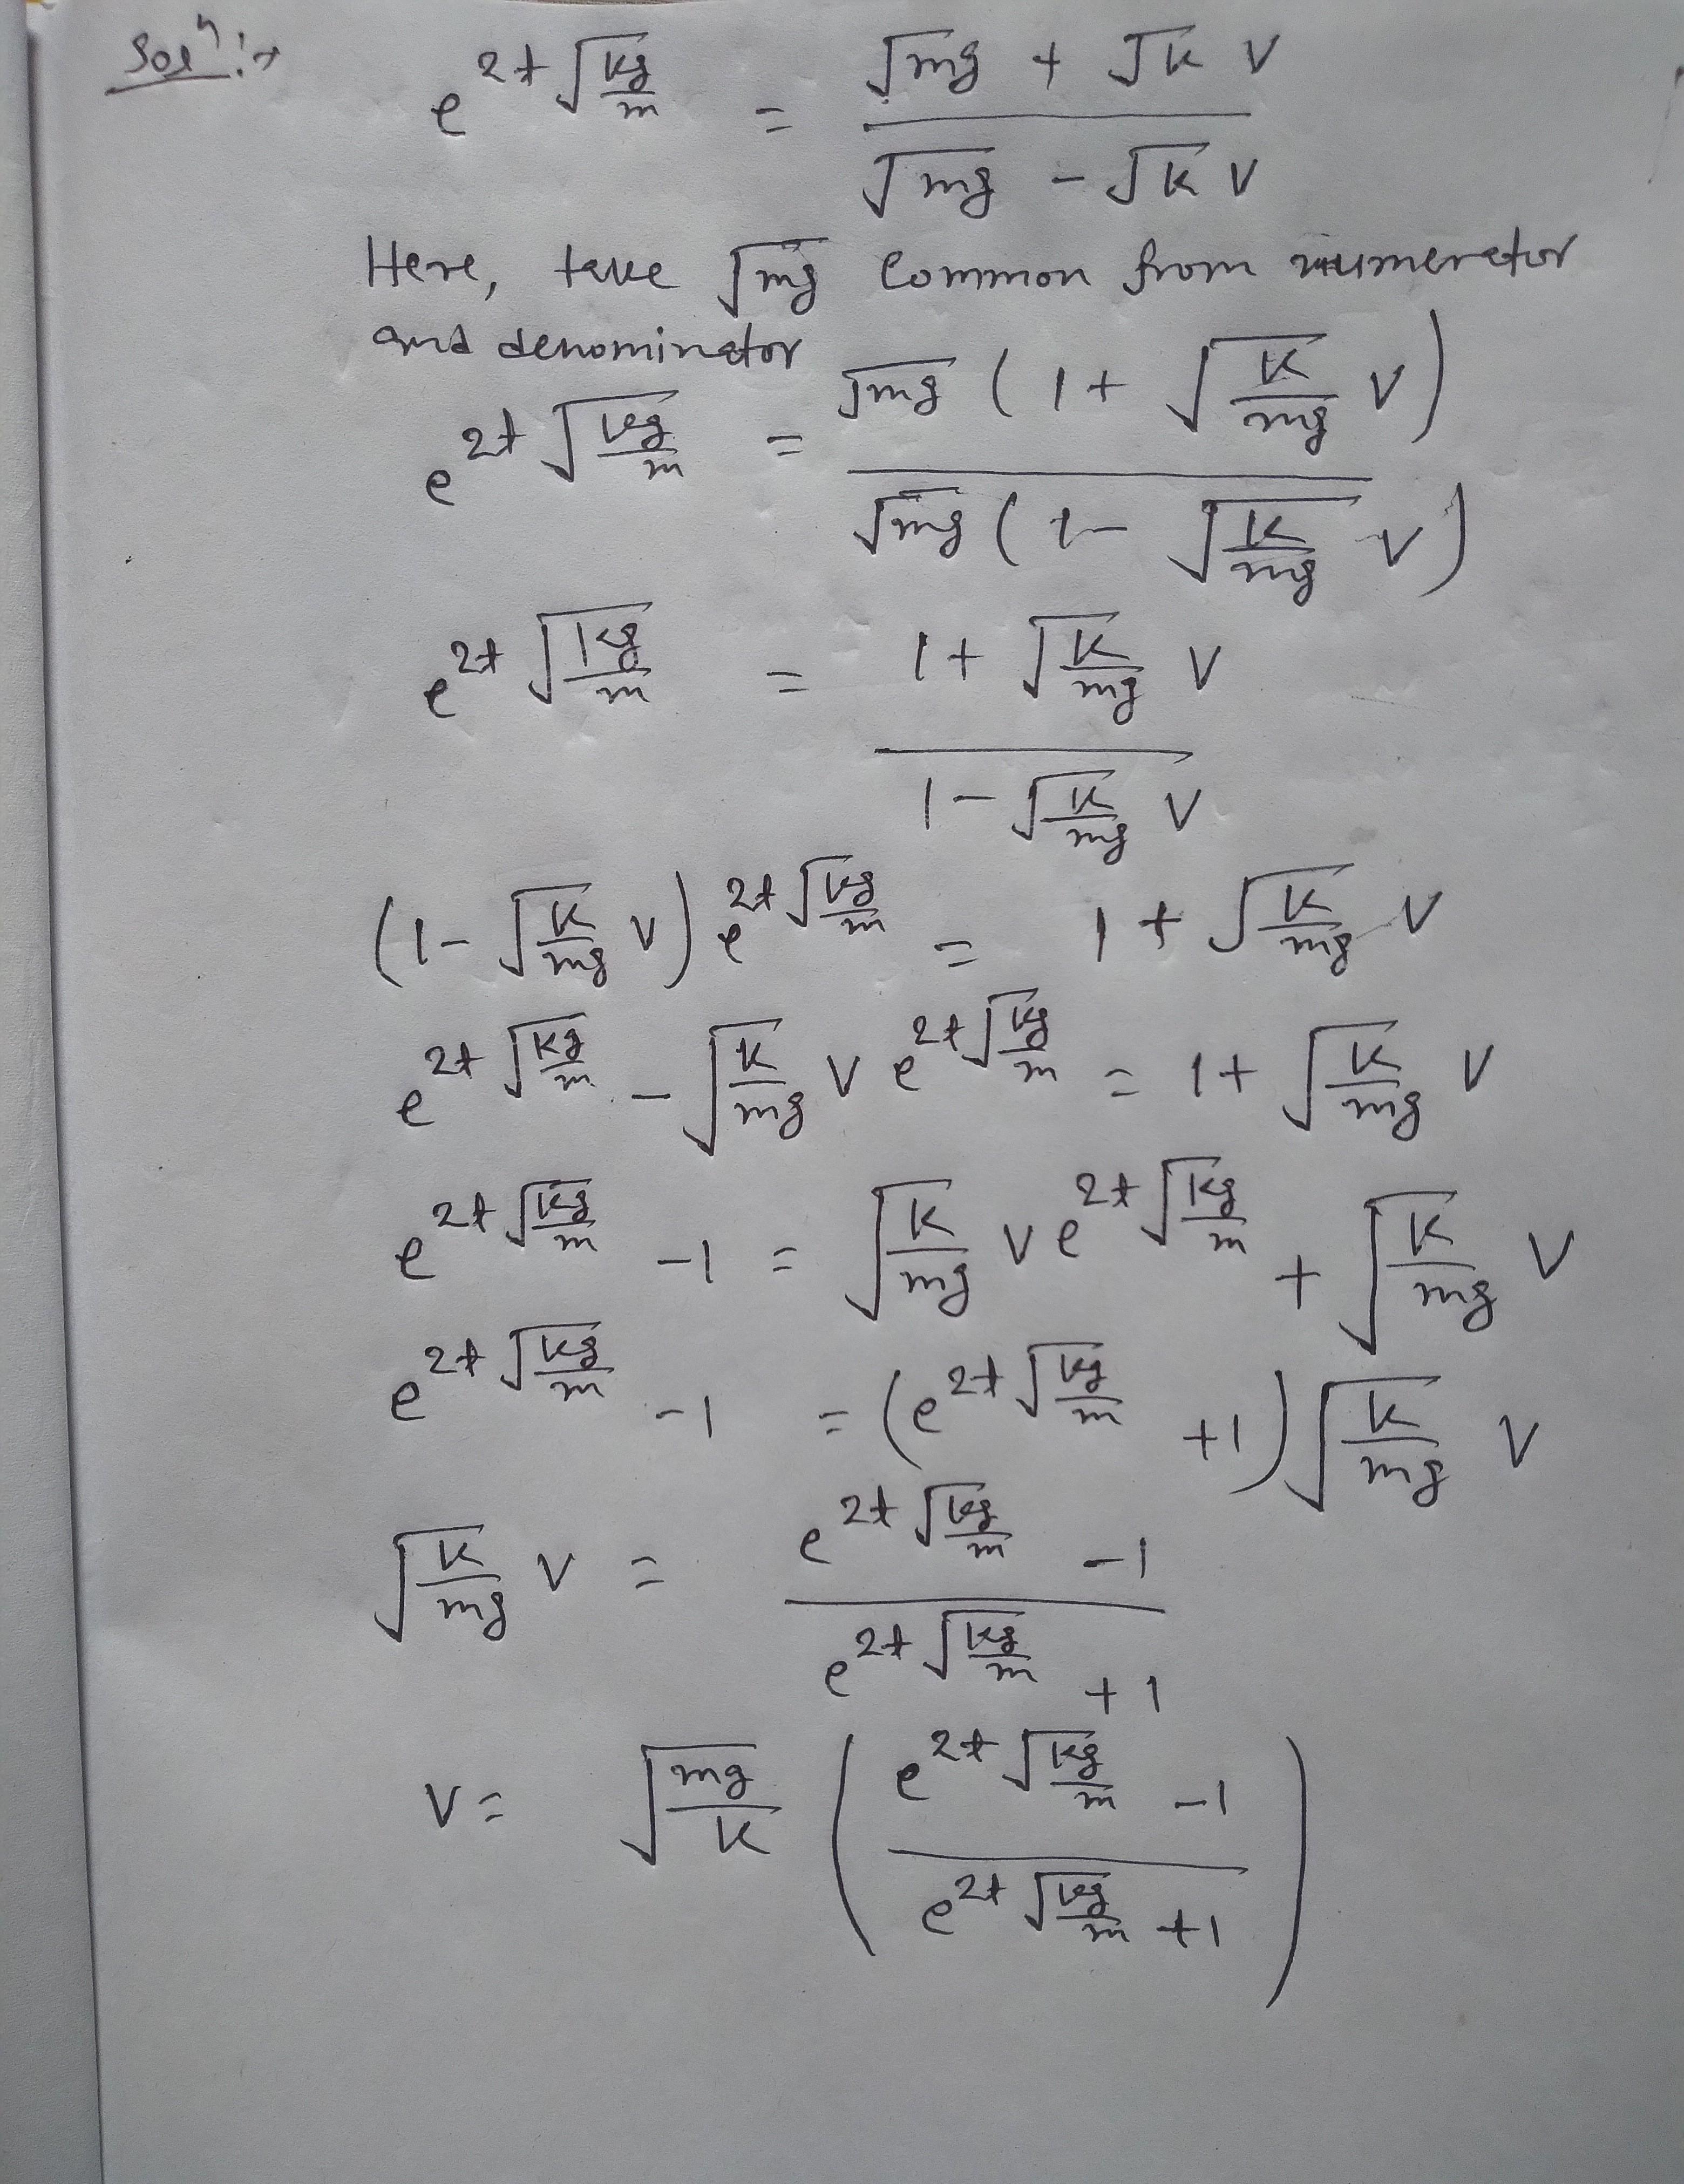 Solⁿ:→ e^{2t√(kg/m)} = (√mg + √k v)/(√mg - √k v)
Here, take √mg common from numerator
and denominator
e^{2t√(kg/m)} = √mg (1 + √(k/mg) v)/√mg (1 - √(k/mg) v)
e^{2t√(kg/m)} = (1 + √(k/mg) v)/(1 - √(k/mg) v)
(1 - √(k/mg) v) e^{2t√(kg/m)} = 1 + √(k/mg) v
e^{2t√(kg/m)} - √(k/mg) v e^{2t√(kg/m)} = 1 + √(k/mg) v
e^{2t√(kg/m)} - 1 = √(k/mg) v e^{2t√(kg/m)} + √(k/mg) v
e^{2t√(kg/m)} - 1 = (e^{2t√(kg/m)} + 1) √(k/mg) v
√(k/mg) v = (e^{2t√(kg/m)} - 1)/(e^{2t√(kg/m)} + 1)
v = √(mg/k) ((e^{2t√(kg/m)} - 1)/(e^{2t√(kg/m)} + 1))